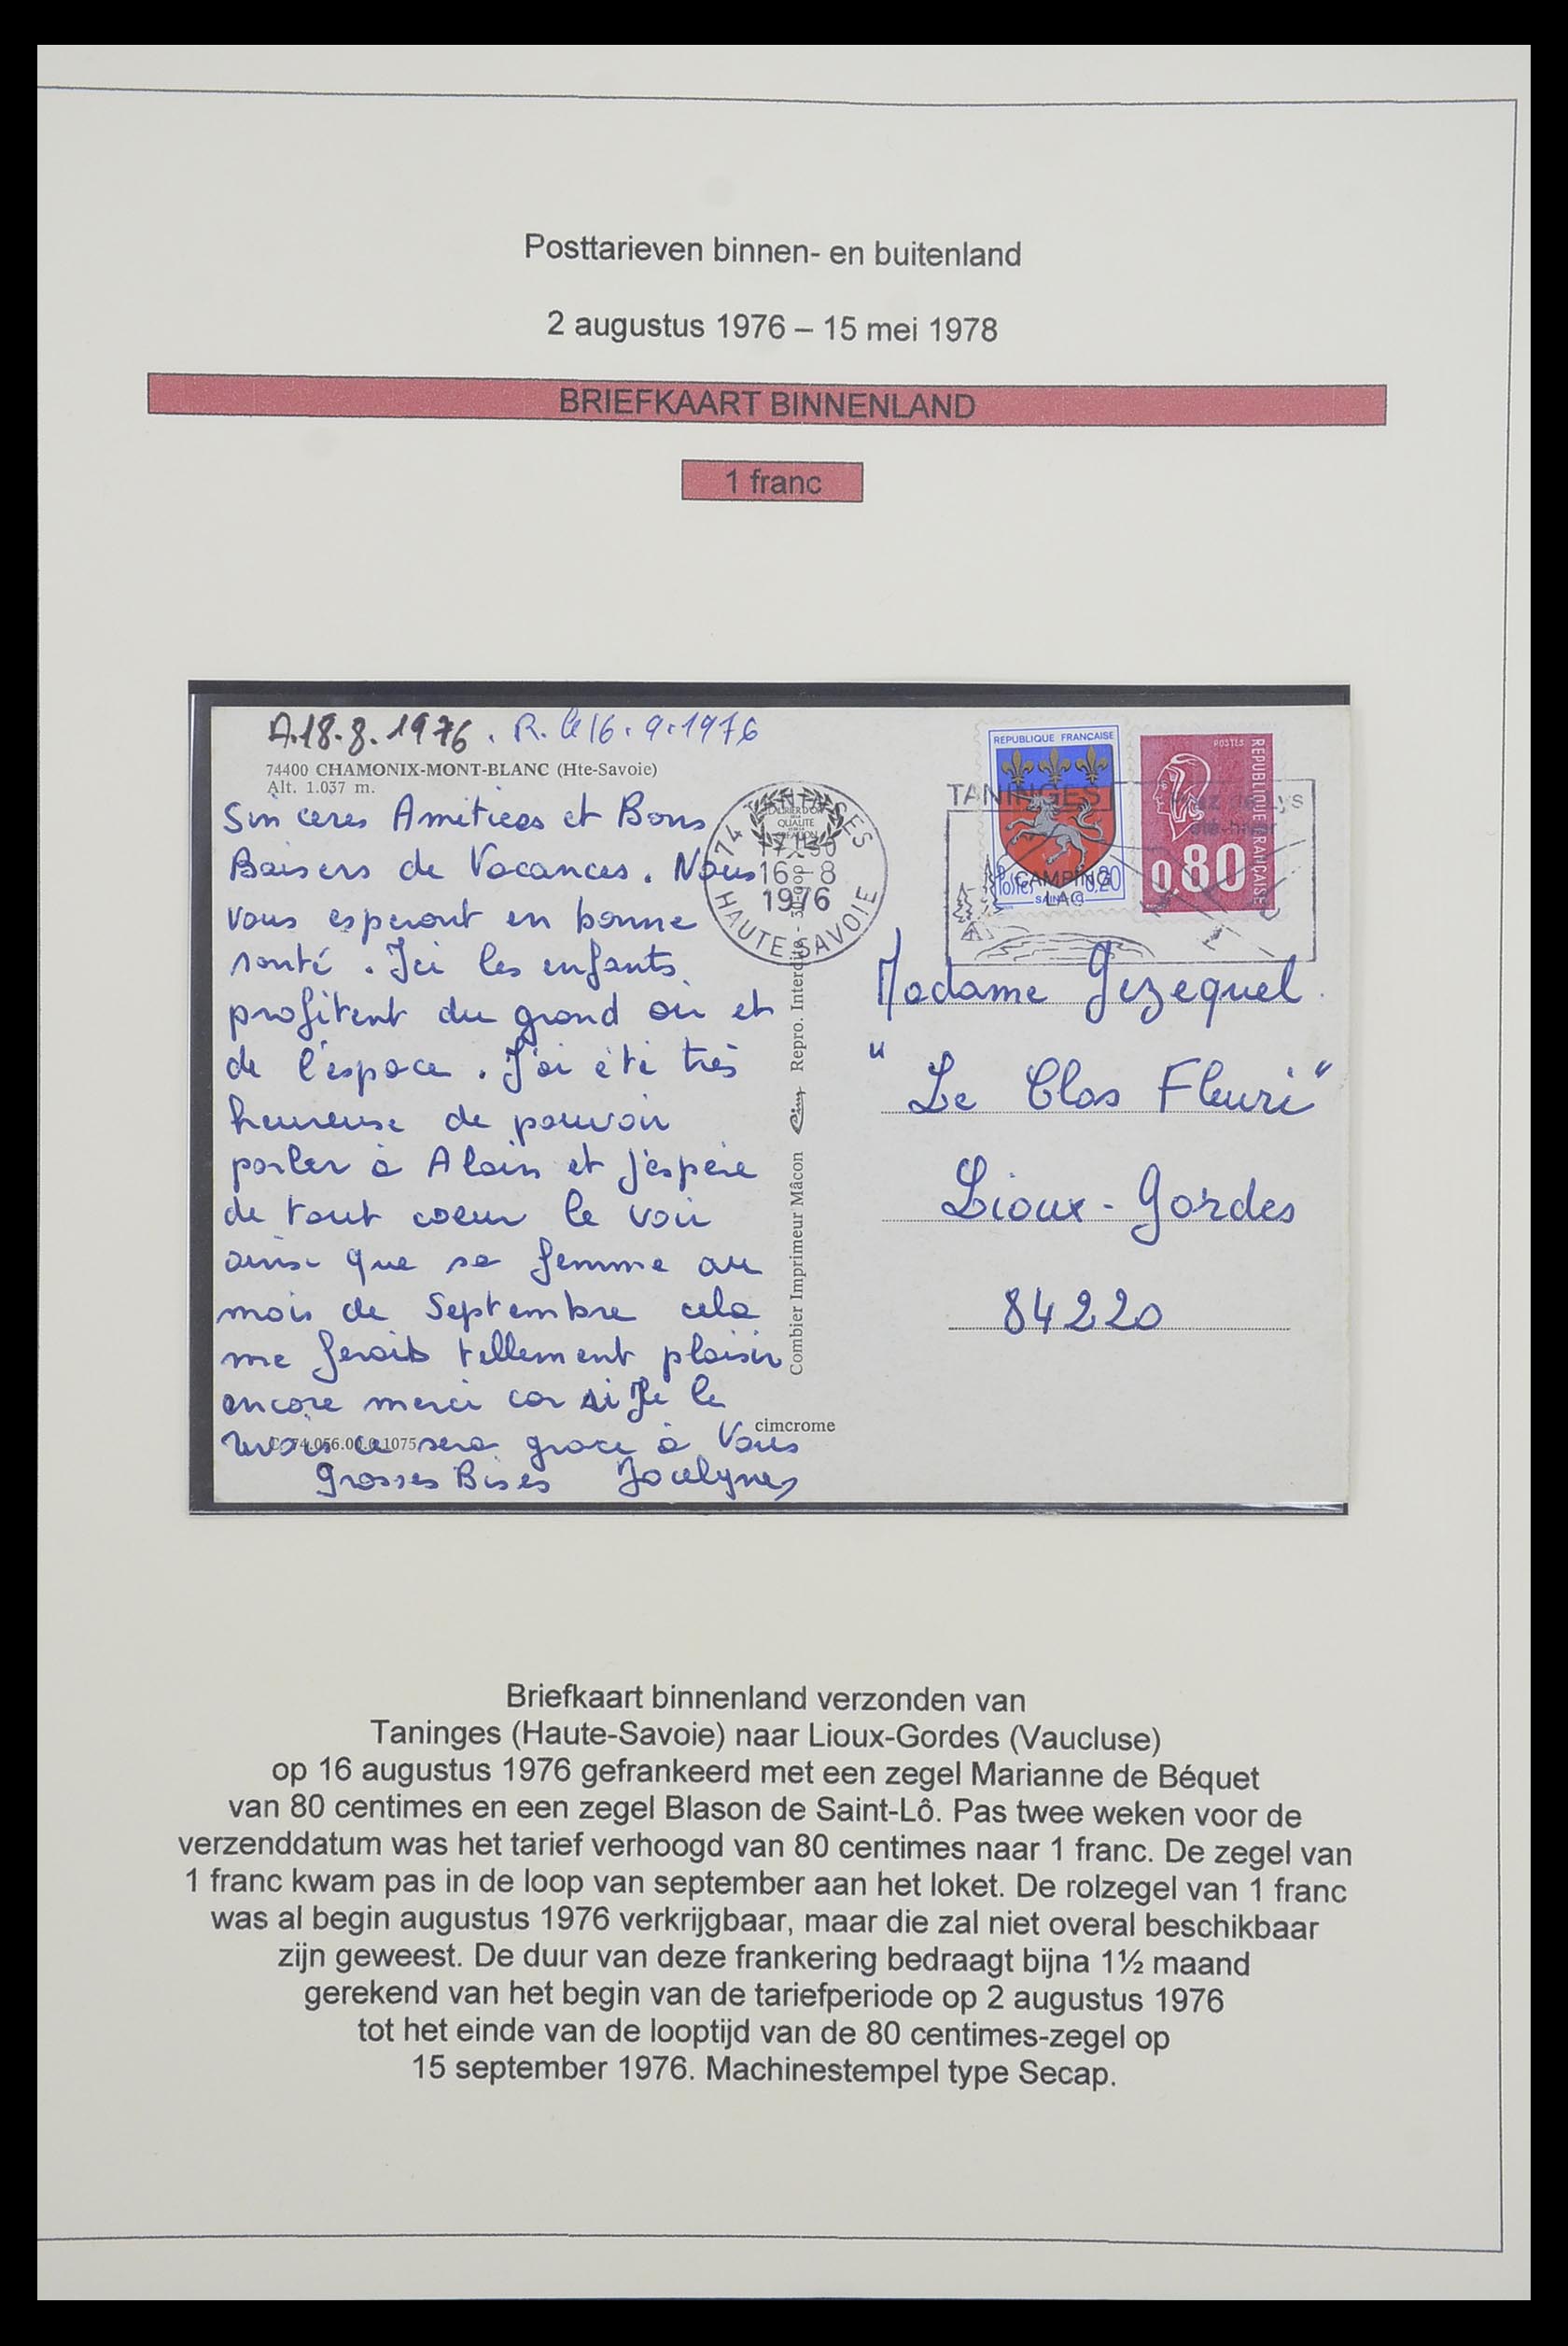 Posttarieven binnen- en buitenland
2 augustus 1976 – 15 mei 1978
BRIEFKAART BINNENLAND
1 franc
A.18.8.1976. R. le 16.9.1976
74400 CHAMONIX-MONT-BLANC (Hte-Savoie)
Alt. 1.037 m.
Sinceres Amitiees et Bons
Baisers de Vacances. Nous
vous esperont en bonne
santé. Ici les enfants
profitent du grand air et
de l'éspace. J'ai été très
heureuse de pouvoir
parler à Alain et j'éspére
de tout coeur le voir
ainsi que sa femme au
mois de Septembre cela
me ferait tellement plaisir
encore merci car si Je le
revois ce sera grace à Vous
Grosses Bises Jocelyne
C. 74.056.00.0.1075
cimcrome
Combier Imprimeur Mâcon Cim Repro. Interdite
74 TANINGES
17 H 30
16 - 8
1976
HAUTE-SAVOIE
QUALITE
TANINGES
Praz de Lys
été-hiver
CAMPING
LAC
REPUBLIQUE FRANÇAISE
Postes 0,20
SAINT-LO
POSTES
REPUBLIQUE FRANCAISE
0,80
Madame Gezequel
"Le Clos Fleuri"
Lioux-Gordes
84220
Briefkaart binnenland verzonden van
Taninges (Haute-Savoie) naar Lioux-Gordes (Vaucluse)
op 16 augustus 1976 gefrankeerd met een zegel Marianne de Béquet
van 80 centimes en een zegel Blason de Saint-Lô. Pas twee weken voor de
verzenddatum was het tarief verhoogd van 80 centimes naar 1 franc. De zegel van
1 franc kwam pas in de loop van september aan het loket. De rolzegel van 1 franc
was al begin augustus 1976 verkrijgbaar, maar die zal niet overal beschikbaar
zijn geweest. De duur van deze frankering bedraagt bijna 1½ maand
gerekend van het begin van de tariefperiode op 2 augustus 1976
tot het einde van de looptijd van de 80 centimes-zegel op
15 september 1976. Machinestempel type Secap.